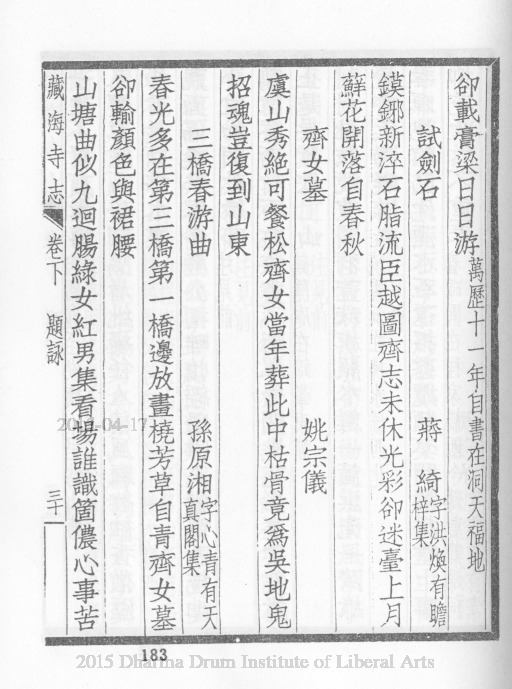 卻載膏梁日日游萬歷十一年自書在洞天福地
試劍石 蔣 綺字洪煥有瞻梓集
鏌鋣新淬石脂流臣越圖齊志未休光彩卻迷臺上月
蘚花開落自春秋
齊女墓 姚宗儀
虞山秀絶可餐松齊女當年葬此中枯骨竟爲吳地鬼
招魂豈復到山東
三橋春游曲 孫原湘字心青有天真閣集
春光多在第三橋第一橋邊放畫橈芳草自青齊女墓
卻輸顏色與裙腰
山塘曲似九迴腸綠女紅男集看場誰識箇儂心事苦
藏海寺志 卷下 題詠 三十
183
2015-04-17
2015 Dharma Drum Institute of Liberal Arts